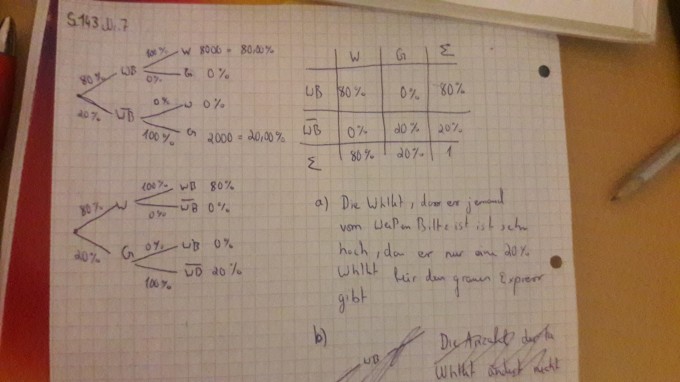 S.143, Nr. 7
80% WB 100% W 8000 = 80,00%
0% G 0%
20% W̅B̅ 0% W 0%
100% G 2000 = 20,00%
W G Σ
WB 80% 0% 80%
W̅B̅ 0% 20% 20%
Σ 80% 20% 1
80% W 100% WB 80%
0% W̅B̅ 0%
20% G 0% WB 0%
100% W̅B̅ 20%
a) Die Whlkt, dass er jemand
vom ist ist sehr
hoch, da er nur eine 20%
Whlkt für den grauen
gibt
b) WB
Die Anzahl der
Whlkt ändert nicht